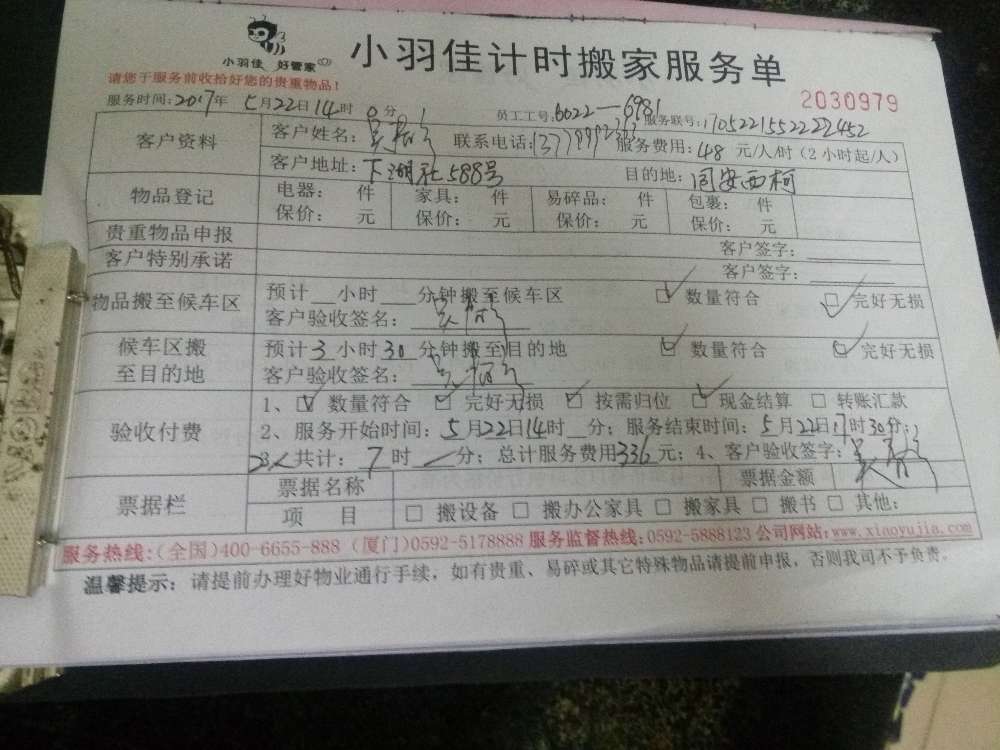 小羽佳 好管家
小羽佳计时搬家服务单
请您于服务前收拾好您的贵重物品!
2030979
服务时间:2017年 5月22日14时0分 员工工号:6022-6981 服务联号:170522155222222452
客户资料 客户姓名: 联系电话: 服务费用:48 元/人/时(2小时起/人)
客户地址:下湖社588号 目的地:同安西柯
物品登记 电器: 件 家具: 件 易碎品: 件 包裹: 件
保价: 元 保价: 元 保价: 元 保价: 元
贵重物品申报 客户签字:
客户特别承诺 客户签字:
物品搬至候车区 预计__小时__分钟搬至候车区 ☑ 数量符合 ☑ 完好无损
客户验收签名:
候车区搬至目的地 预计3小时30分钟搬至目的地 ☑ 数量符合 ☑ 完好无损
客户验收签名:
验收付费 1、☑ 数量符合 ☑ 完好无损 ☑ 按需归位 ☑ 现金结算 □ 转账汇款
2、服务开始时间:5月22日14时__分;服务结束时间:5月22日17时30分;
2人共计:7时__分;总计服务费用336元;4、客户签字:
票据栏 票据名称 票据金额
项 目 □ 搬设备 □ 搬办公家具 □ 搬家具 □ 搬书 □ 其他:
服务热线:(全国)400-6655-888 (厦门)0592-5178888 服务监督热线:0592-5888123 公司网站:www.xiaoyujia.com
温馨提示:请提前办理好物业通行手续,如有贵重、易碎或其它特殊物品请提前申报,否则我司不予负责。